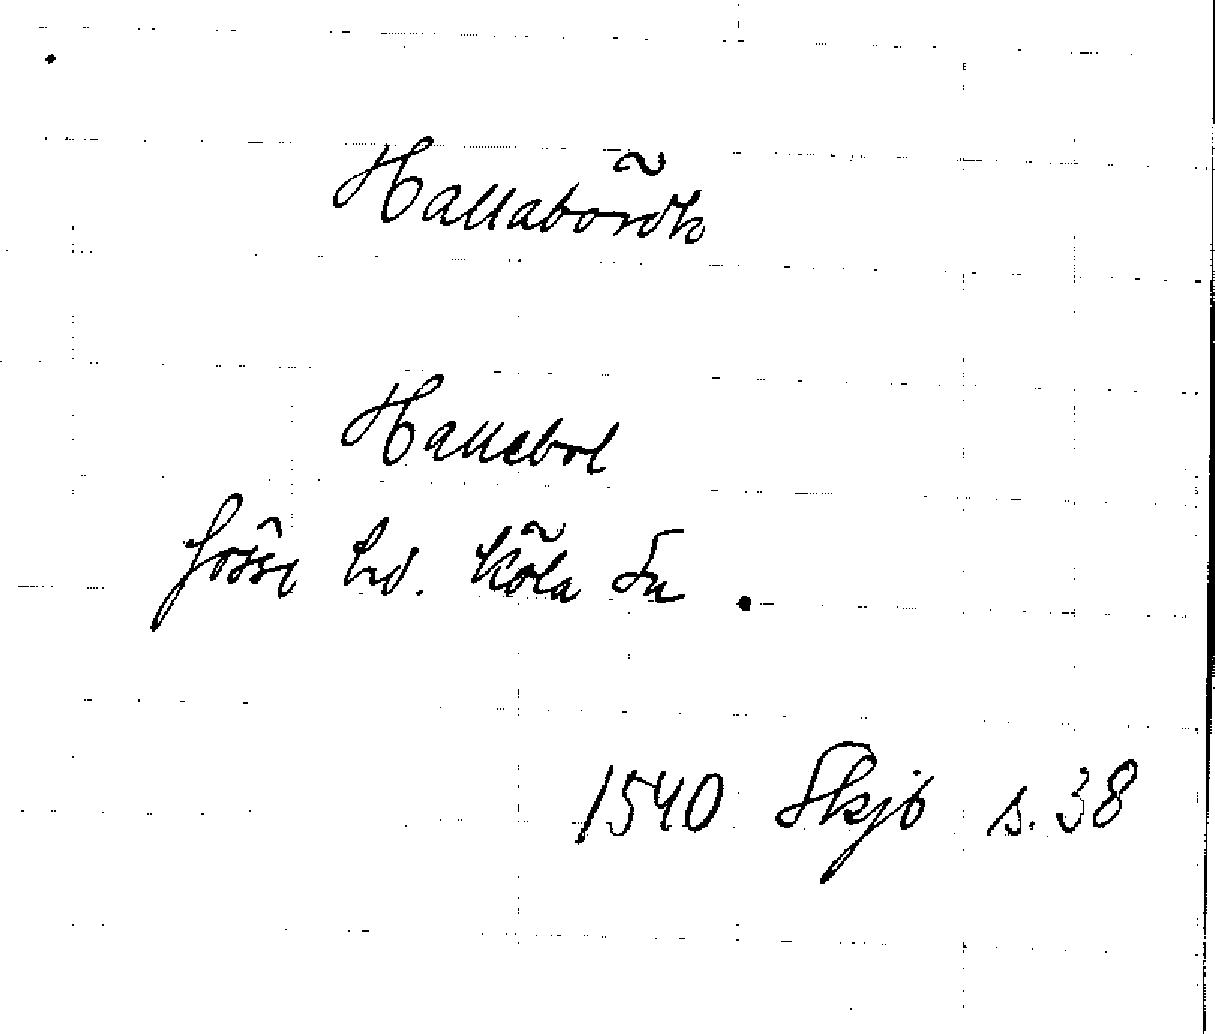 Hallabördh
Hallebol
Jösse hd. Köla sn.
1540 Skjb s. 38